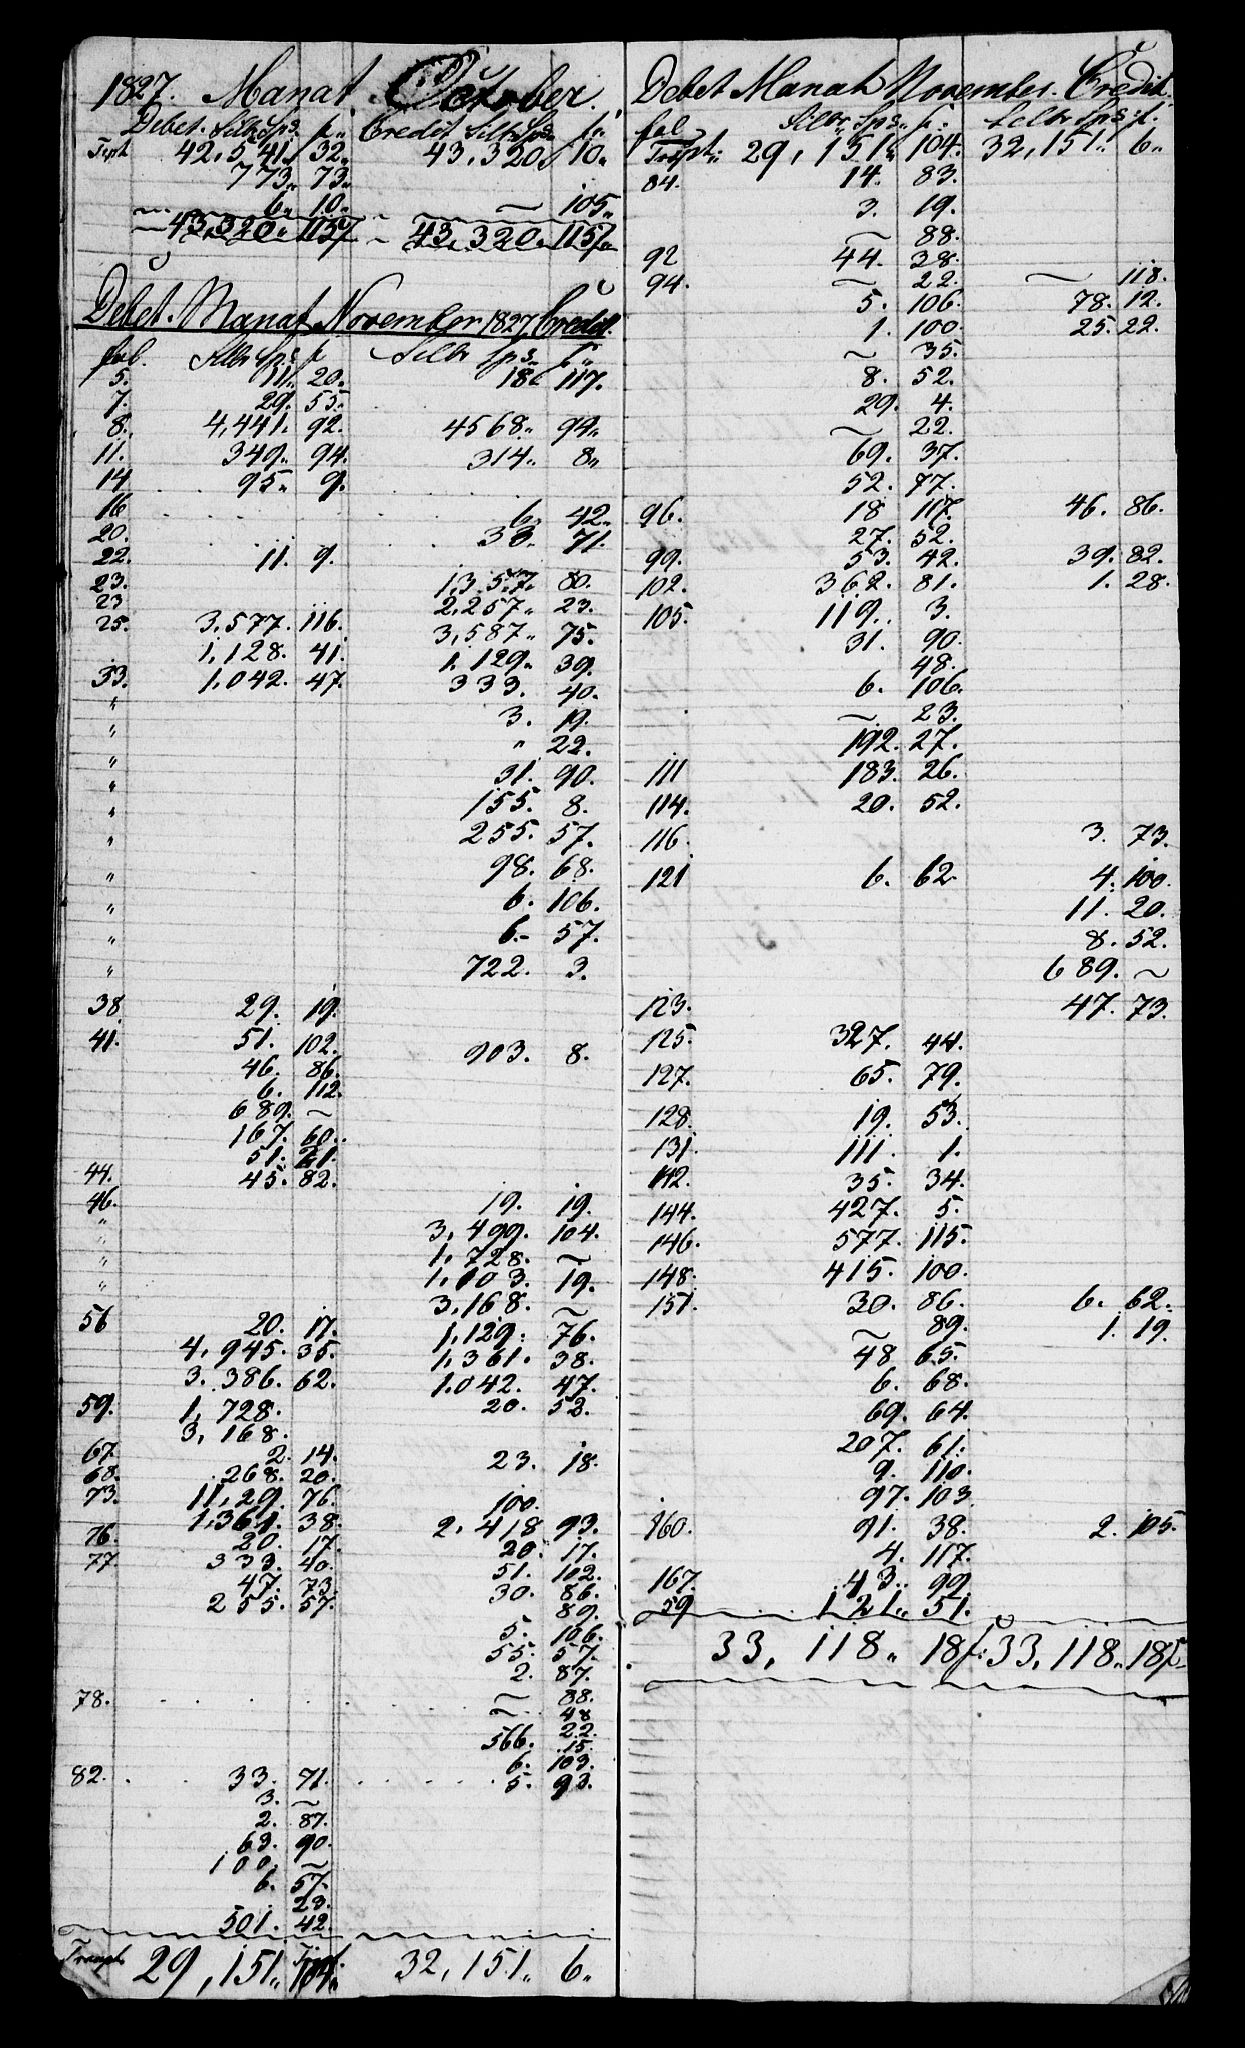 1827. Manat October.
Debet. Silbr Sps. ſ„ Credit Silbr Sps„ ſ„
Trspt 42,541„ 32„ 43,320„ 10„
773„ 73„
6„ 10„ ~ 105„
43,320„ 115ſ 43,320„ 115ſ„
Debet. Manat November 1827 Credit.
fol. Silbr Sps. ſ Silbr Sps„ ſ„
5. 11„ 20. 18„ 117.
7. 29. 55.
8. 4,441. 92. 4568„ 94„
11. 349„ 94. 314„ 8„
14 95„ 9.
16 6. 42„
20. 33. 71.
22. 11. 9.
23. 1,357„ 80.
23 2,257„ 23.
25. 3,577. 116. 3,587„ 75.
1,128. 41. 1,129„ 39.
33. 1,042. 47. 333. 40.
„ 3. 19.
„ „ 22.
„ 31. 90.
„ 155. 8.
„ 255. 57.
„ 98. 68.
„ 6. 106.
„ 6.- 57.
„ 722. 3.
38 29. 19.
41. 51. 102. 903. 8.
46. 86.
6. 112.
689. ~
167. 60.
51. 21.
44. 45. 82.
46. 19. 19.
„ 3,499. 104.
„ 1,728. ~
„ 1,103. 19.
„ 3,168. ~
56 20. 17. 1,129. 76.
4,945. 35. 1,361. 38.
3.386. 62. 1.042. 47.
59. 1,728. 20. 52.
3,168.
67. 2. 14. 23. 18.
68. 268. 20.
73. 11,29. 76. 100.
1,361. 38. 2,418 93.
76. 20. 17. 20. 17.
77. 333. 40. 51. 102.
47. 73. 30. 86.
255. 57. 89.
5. 106.
55. 57.
2. 87.
78. ~ 88.
~ 48
566. 22.
15.
6. 103.
82. 33. 71. 5. 93.
3. ~
2. 87.
63. 90.
100. ~
6. 57.
23.
501. 42.
Transpt 29,151„ 104„ 32,151„ 6„
Debet Manat November. Credit.
fol Silbr Sps„ ſ. Silbr Sps. ſ.
Trspt„ 29,151„ 104. 32,151„ 6„
84. 14. 83.
3. 19.
~ 88.
92 44. 38.
94. ~ 22. ~ 118.
5. 106. 78. 12.
1. 100. 25. 22.
~ 35.
8. 52.
29. 4.
~ 22.
69. 37.
52. 77.
96. 18 117. 46. 86.
27. 52.
99. 53. 42. 39. 82.
102. 362. 81. 1. 28.
105. 119. 3.
31. 90.
48.
6. 106.
~ 23.
192. 27.
111 183. 26.
114. 20. 52.
116. 3. 73.
121 6. 62. 4. 100.
11. 20.
8. 52.
689. ~
123. 47. 73.
125. 327. 44.
127. 65. 79.
128. 19. 53.
131. 111. 1.
142. 35. 34.
144. 427. 5.
146. 577. 115.
148. 415. 100.
151. 30. 86. 6. 62.
~ 89. 1. 19.
48 65.
6. 68.
69. 64.
207. 61.
9. 110.
97. 103.
160. 91. 38. 2. 105.
4. 117.
167. 43. 99.
59 121„ 51.
33, 118„ 18ſ. 33,118„ 18ſ